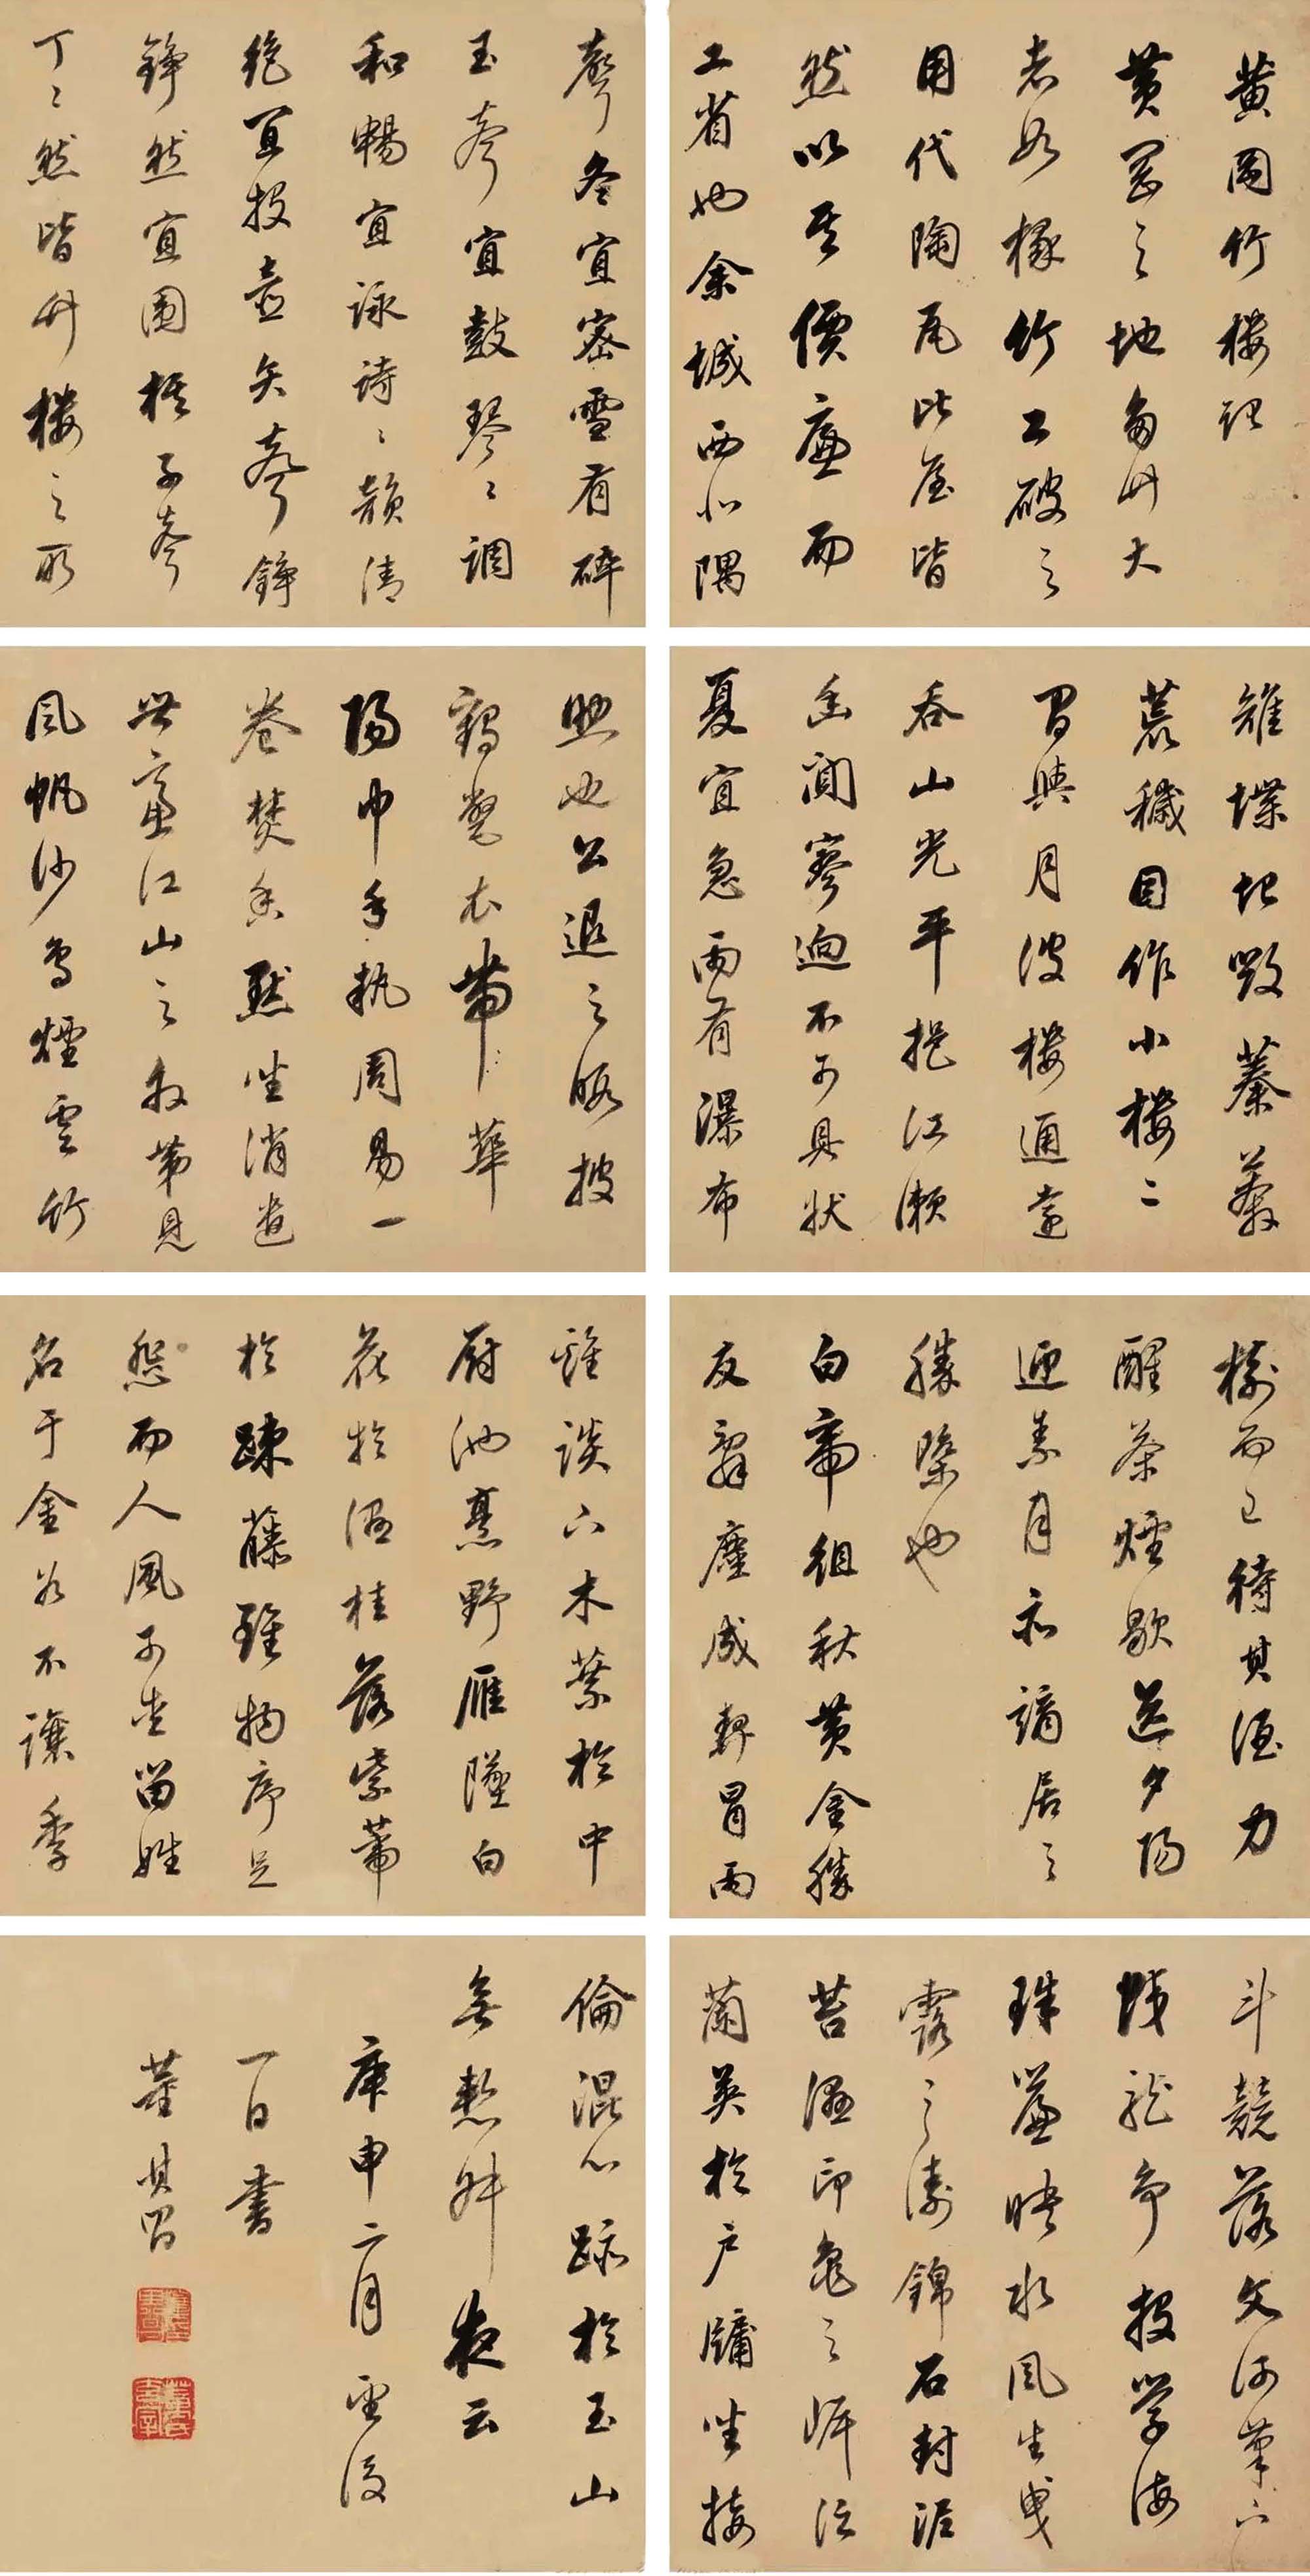 黄岡竹樓記
黄岡之地多竹大
者如椽竹工破之
用代陶瓦比屋皆
然以其價廉而
工省也余城西北隅
雉堞圮毀蓁莽
荒穢因作小樓二
間與月波樓通遠
吞山光平挹江瀨
幽闃寥迥不可具狀
夏宜急雨有瀑布
聲冬宜密雪有碎
玉聲宜鼓琴〻調
和暢宜詠詩〻韻清
絶宜投壺矢聲錚
錚然宜圍棋子聲
丁〻然皆竹樓之所
助也公退之暇披
鶴氅衣帶華
陽巾手執周易一
卷焚香默坐消遣
世慮江山之外第見
風帆沙鳥煙雲竹
樹而已待其酒力
醒茶煙歇送夕陽
迎素月亦謫居之
勝槩也
白帝徂秋黄金勝
友辭塵成契冒雨
斗競落文河筆下
蛟龍爭投學海
珠簾映水風生曳
露之濤錦石封泥
苔濕印龜之岸泛
蘭英於戶牖坐接
雞談下木葉於中
廚池烹野雁墜白
花於濕桂落紫蒂
於疎藤雖物序足
怨而人風可愛留姓
名于金谷不讓季
倫混心跡於玉山
無慙叔夜云
庚申二月望後
一日書
董其昌